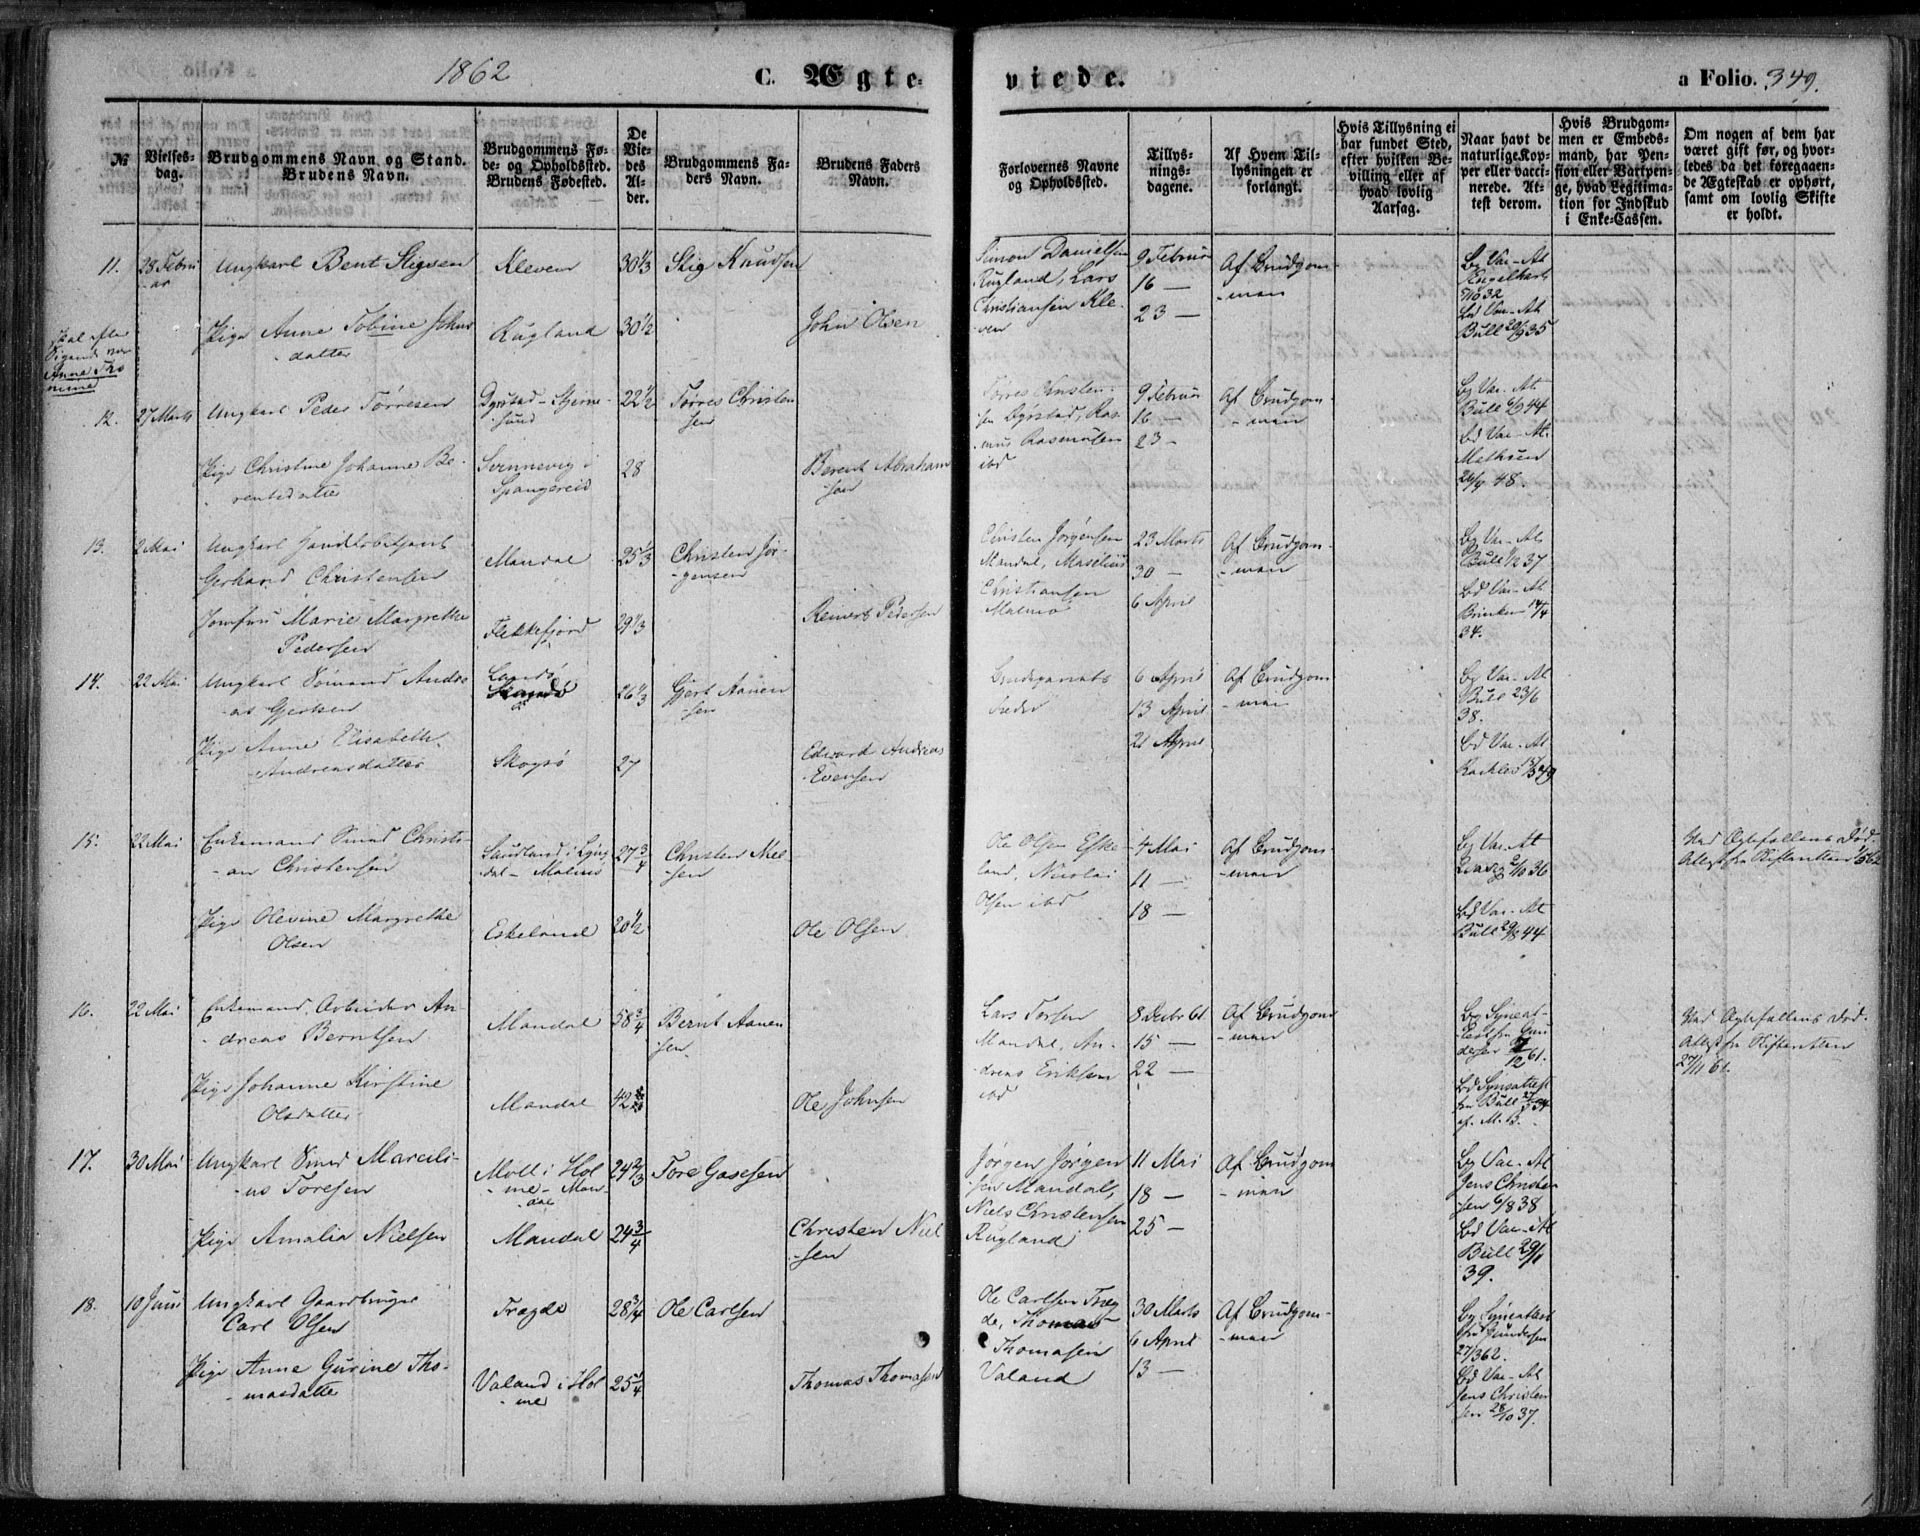 1862
C. Ægte-
viede.
a Folio. 349.
№
Vielses-
dag.
Brudgommens Navn og Stand.
Brudens Navn.
Brudgommens Fø-
de- og Opholdssted.
Brudens Fødested.
De
Vie-
des
Al-
der.
Brudgommens Fa-
ders Navn.
Brudens Faders
Navn.
Forlovernes Navne
og Opholdssted.
Tillys-
nings-
dagene.
Af Hvem Til-
lysningen er
forlangt.
Hvis Tillysning ei
har fundet Sted,
efter hvilken Be-
villing eller af
hvad lovlig
Aarsag.
Naar havt de
naturlige Kop-
per eller vacci-
nerede. At-
test derom.
Hvis Brudgom-
men er Embeds-
mand, har Pen-
sion eller Vartpen-
ge, hvad Legitima-
tion for Indskud
i Enke-Cassen.
Om nogen af dem har
været gift før, og hvor-
ledes da det foregaaen-
de Ægteskab er ophørt,
samt om lovlig Skifte
er holdt.
11.
28 Febru
-ar
Ungkarl Bent Stigsen
Kleven
30 1/3
Stig Knudsen
Pige Anne Tobine Johns
-datter
Rugland
30 1/2
John Olsen
Simon Danielsen
Rugland, Lars
Christiansen Kle-
ven
9 Februar
16 —
23 —
Af Brudgom-
-man
Bg Vac-At
Engelhart
32
Bd Vac-At
Bull 20/9 35
12.
27 Marts
Ungkarl Peder Tørresen
Dyrstad - Stjerne-
sund
22 1/2
Tørres Christen
sen
Pige Christine Johanne Be-
rentsdatter
Svennevig i
Spangereid
28
Berent Abraham
-sen
Tørres Christen-
sen Dyrstad, Ras-
mus Rasmusen
ibd
9 Februar
16 —
23 -
Af Brudgom-
-man
Bg Vac-At
Bull 6/9 44
Bd Vac-At.
Mathsen
26/9 48.
13.
2 Mai
Ungkarl Handelsbetjent
Gerhard Christensen
Mandal
25 1/3
Christen Jør-
-gensen
Jomfru Marie Margrethe
Pedersen
Flekkefjord
29 1/3
Reinert Pedersen
Christen Jørgensen
Mandal, Maselius
Christiansen
Malmø
23 Marts
30 —
6 April
Af Brudgom-
-man
Bg Vac-At
Bull 1/12 37
Bd Vac-At
Brinken 14/4
34.
14.
22 Mai
Ungkarl Sömand Andre
-as Gjertsen
Landø
26 1/3
Gjert Aanen
-sen
Pige Anne Elisabeth
Andreasdatter
Skogsø
27
Edvard Andreas
Evensen
6 April
13 April
21 April
Af Brudgom-
-man
Bg Vac-At
Bull 23/6
38.
Bd Vac-At
15.
22 Mai
Enkemand Smed Christi-
-an Christensen
Saudland i Lyng
dal - Malmø
27 3/4
Christen Niel
sen
Pige Olevine Margrethe
Olsen
Eskeland
20 1/2
Ole Olsen
Ole Olsen Eske
land, Nicolai
Olsen ibd
4 Mai
11 —
18 —
Af Brudgom-
-man
Bg Vac-At
2/10 36
Bd Vac-At
Bull 29/8 44
Ved Ægtefællens Død
Attest fra Skifteretten 1/5 62
16.
22 Mai
Enkemand Arbeider An-
-dreas Berntsen
Mandal
58 3/4
Bernt Aanen
sen
Pige Johanne Kirstine
Olsdatter
Mandal
42
Ole Johnsen
Lars Torsen
Mandal, An-
dreas Eriksen
ibd
8 Decbr 61
15 —
22 —
Af Brudgom
-man
Bg Synsat-
test fra Gun
dersen
12 61.
Bd Synsattest
fra Bull
af. M. B.
Ved Ægtefællens Død.
Attest fra Skifteretten
27/11 61
17.
30 Mai
Ungkarl Smed Marcili-
-us Toresen
Moll i Hol
-me - Man-
dal
24 2/3
Tore Gasesen
Pige Amalia Nielsen
Mandal
24 3/4
Christen Niel
-sen
Jørgen Jørgen
-sen Mandal,
Niels Christensen
Rugland
11 Mai
18 —
25 —
Af Brudgom
-man
Bg Vac-At
Jens Christen
sen 6/8 38
Bd Vac-At
Bull 29/1
39.
18.
10 Juni
Ungkarl Gaardbruger
Carl Olsen
Tregde
28 3/4
Ole Carlsen
Pige Anne Gurine Tho-
-masdatter
Valand i Hol
-me
25 1/4
Thomas Thomasen
Ole Carlsen Treg
de, Thomas
Thomasen
Valand
30 Marts
6 April
13 —
Af Brudgom-
-man
Bg Synsattest
fra Gundersen
27/3 62.
Bd Vac-At
Jens Christen
sen 28/10 37.